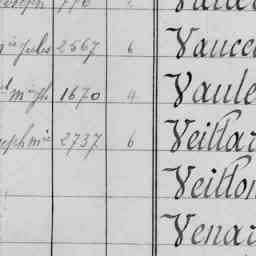 776 2
Jules 2567 6 Vauce
1670 4 Vaule
eph 2737 6 Veillar
Veillon
Venar